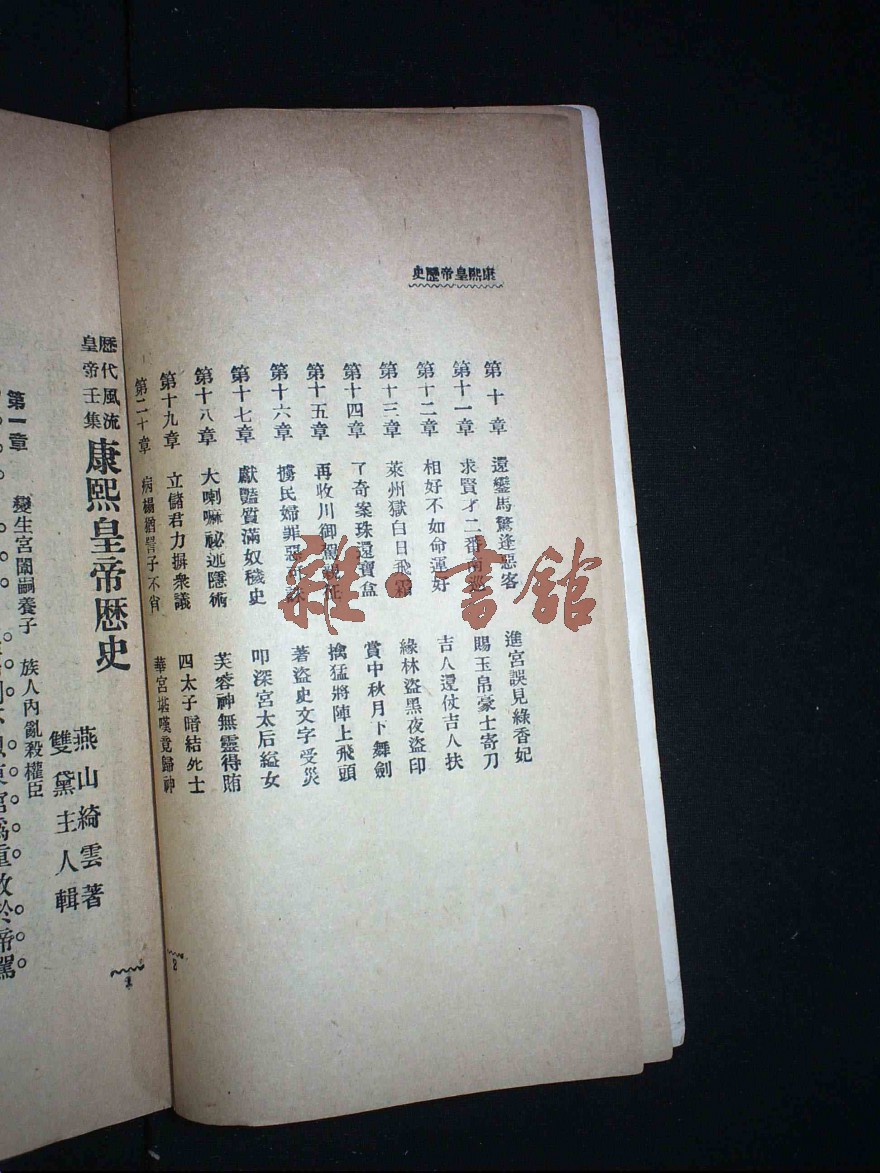 康熙皇帝歷史
第十章 還鑾馬驚逢惡客 進宮誤見綠香妃
第十一章 求賢才二番南巡 賜玉帛豪士寄刀
第十二章 相好不如命運好 吉人還仗吉人扶
第十三章 萊州獄白日飛霜 綠林盜黑夜盜印
第十四章 了奇案珠還寶盒 賞中秋月下舞劍
第十五章 再收川御駕親征 擒猛將陣上飛頭
第十六章 擄民婦罪惡 誅 著盜史文字受災
第十七章 獻豔質滿奴穢史 叩深宮太后縊女
第十八章 大喇嘛祕述隱術 芙蓉神無靈得賄
第十九章 立儲君力摒衆議 四太子暗結死士
第二十章 病榻猶詈子不肖 華宮堪嘆竟歸神
2
歷代風流
皇帝壬集
康熙皇帝歷史
燕山綺雲著
雙黛主人輯
第一章 變生宮闈嗣養子 族人內亂殺權臣
1
雜·書館